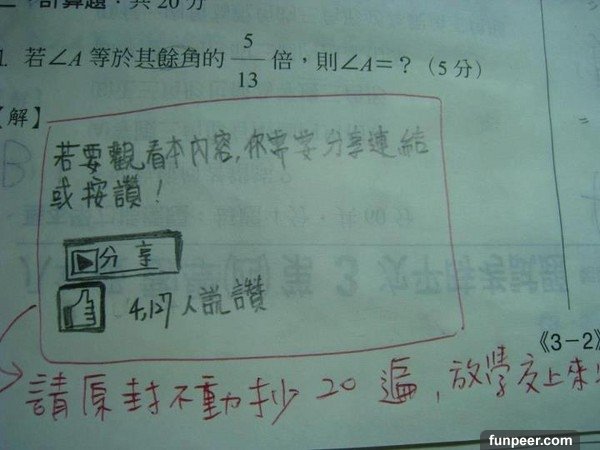 二、計算題：共20分
1. 若∠A等於其餘角的 5/13 倍，則∠A=？（5分）
【解】
若要觀看本內容，你需要分享連結
或按讚！
分享
4,127人說讚
《3-2》
請原封不動抄20遍，放學交上來
funpeer.com